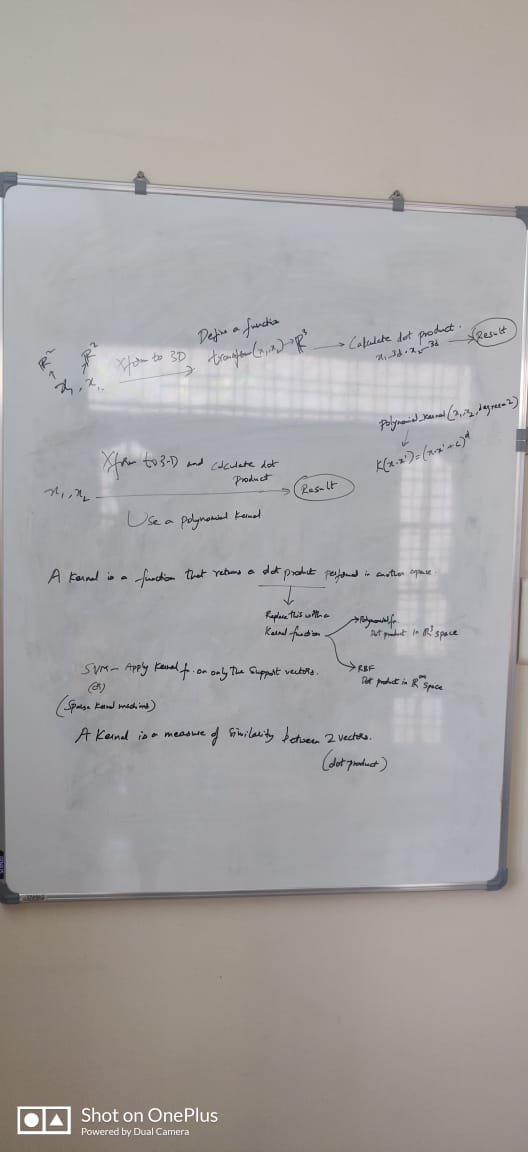 Define a function
R² R² Xform to 3D transform(x₁,x₂)→R³ → Calculate dot product. → Result
x₁, x₂ x₁_3d . x₂_3d
Polynomial_kernel(x₁,x₂,degree=2)
K(x.x') = (x.x'+c)ᵈ
Xform to 3-D and calculate dot
product
x₁, x₂ → Result
Use a polynomial kernel
A Kernel is a function that returns a dot product performed in another space.
Replace this with a
Kernel function
→ Polynomial fn
Dot product in R³ space
→ RBF
Dot product in R^∞ space
SVM - Apply Kernel fn. on only the support vectors.
(or)
(Sparse Kernel machines)
A Kernel is a measure of similarity between 2 vectors.
(dot product)
Shot on OnePlus
Powered by Dual Camera